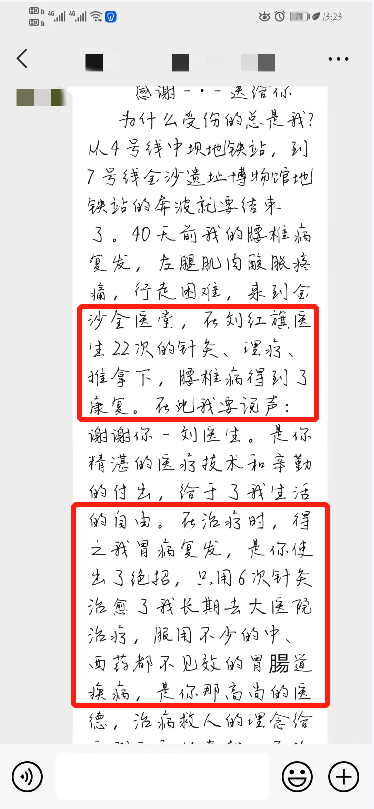 13:23
感谢---送给你
为什么受伤的总是我?
从4号线中坝地铁站,到
7号线金沙遗址博物馆地
铁站的奔波就要结束
了。40天前我的腰椎病
复发,左腿肌肉酸胀疼
痛,行走困难,来到金
沙全医堂,在刘红旗医
生22次的针灸、理疗、
推拿下,腰椎病得到了
康复。在此我要说声:
谢谢你-刘医生。是你
精湛的医疗技术和辛勤
的付出,给于了我生活
的自由。在治疗时,得
之我胃病复发,是你使
出了绝招,只用6次针灸
治愈了我长期去大医院
治疗,服用不少的中、
西药都不见效的胃腸道
疾病,是你那高尚的医
德,治病救人的理念给